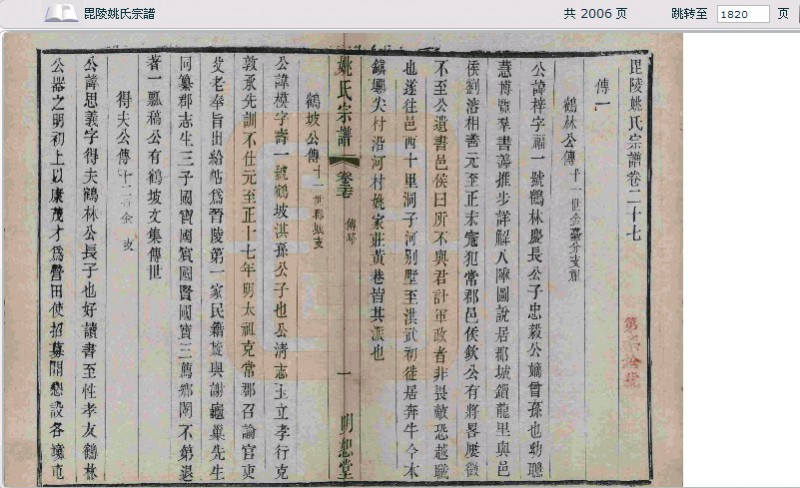 毘陵姚氏宗譜
共 2006 页
跳转至 1820 页
毘陵姚氏宗譜卷二十七
傳一
鶴林公傳
公諱梓字福一號鶴林慶長公子忠毅公嫡曾孫也幼聰
慧博覽羣書籌推步詳解八陣圖說居郡城鎖龍里與邑
侯劉浩相善元至正末寇犯常郡邑侯欽公有將畧屢徵
不至公遺書邑侯曰所不與君計軍政者非畏敵恐越職
也遂往邑西十里洞子河別墅至洪武初徙居奔牛今木
鎮壩尖村沿河村姚家莊黃巷皆其派也
姚氏宗譜
卷二十七
傳
一
明恕堂
鶴坡公傳
公諱模字壽一號鶴坡淇孫公子也公清志玉立孝行克
敦承先訓不仕元至正十七年明太祖克常郡召諭官吏
父老奉旨出給帖爲晉陵第一家民籍旋與謝龜巢先生
同纂郡志生三子國寶國賓國賢國寶三薦鄉闈不第退
著一瓢稿公有鶴坡文集傳世
得夫公傳
公諱思義字得夫鶴林公長子也好讀書至性孝友鶴林
公器之明初上以康茂才爲營田使招募開墾設各壤屯